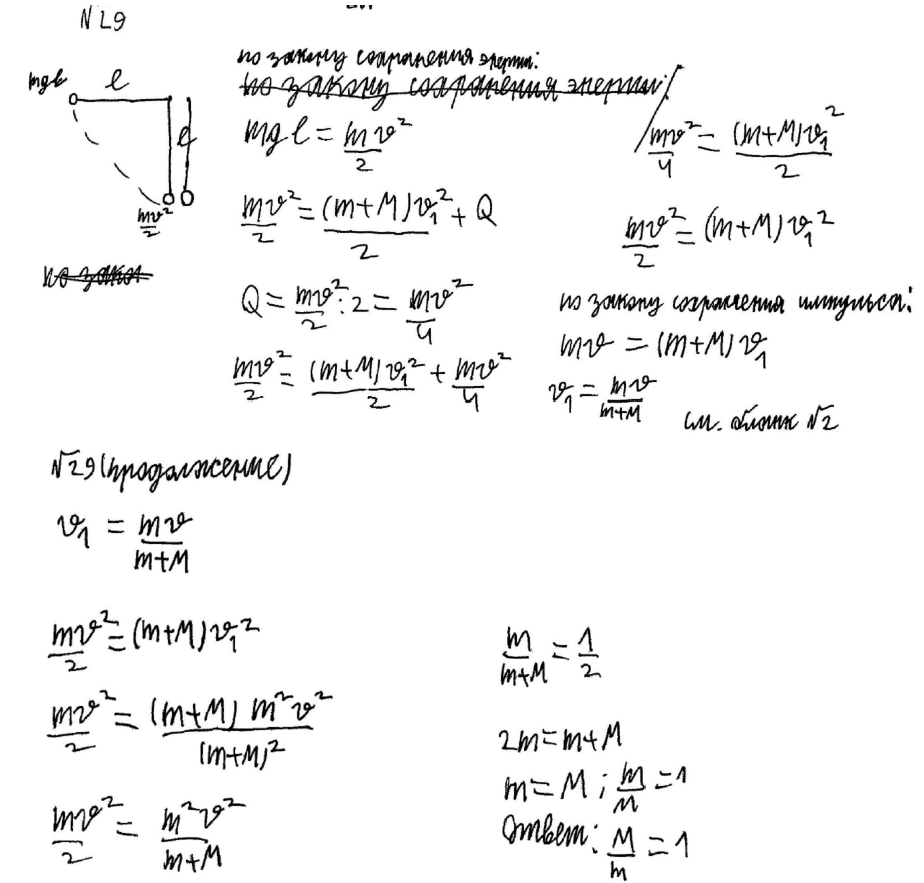 №29
mgl
l
l
mv²/2
по закону сохранения энергии:
по закону сохранения энергии:
mgl = mv²/2
mv²/2 = (m+M)v₁²/2 + Q
Q = mv²/2 : 2 = mv²/4
mv²/2 = (m+M)v₁²/2 + mv²/4
mv²/4 = (m+M)v₁²/2
mv²/2 = (m+M)v₁²
по закону сохранения импульса:
mv = (m+M)v₁
v₁ = mv/m+M
см. бланк №2
№29 (продолжение)
v₁ = mv/m+M
mv²/2 = (m+M)v₁²
mv²/2 = (m+M) m²v²/(m+M)²
mv²/2 = m²v²/m+M
m/m+M = 1/2
2m = m+M
m = M; m/M = 1
Ответ: M/m = 1